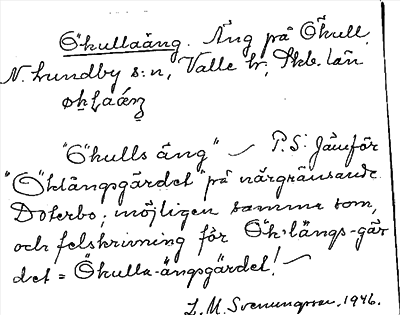 Ökullaäng. Äng på Ökull,
N. Lundby s:n, Valle hd, Skb. län
"Ökulls äng" — P.S. Jämför
"Öklängsgärdet" på närgränsande
Doterbo; möjligen samma som,
och felskrivning för Ök-längs-gär
det = Ökulla-ängsgärdet! —
L. M. Svenungsson. 1946.